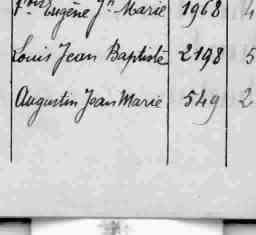 Fois Eugène Jn Marie 1968 4
Louis Jean Baptiste 2198 5
Augustin Jean Marie 549 2